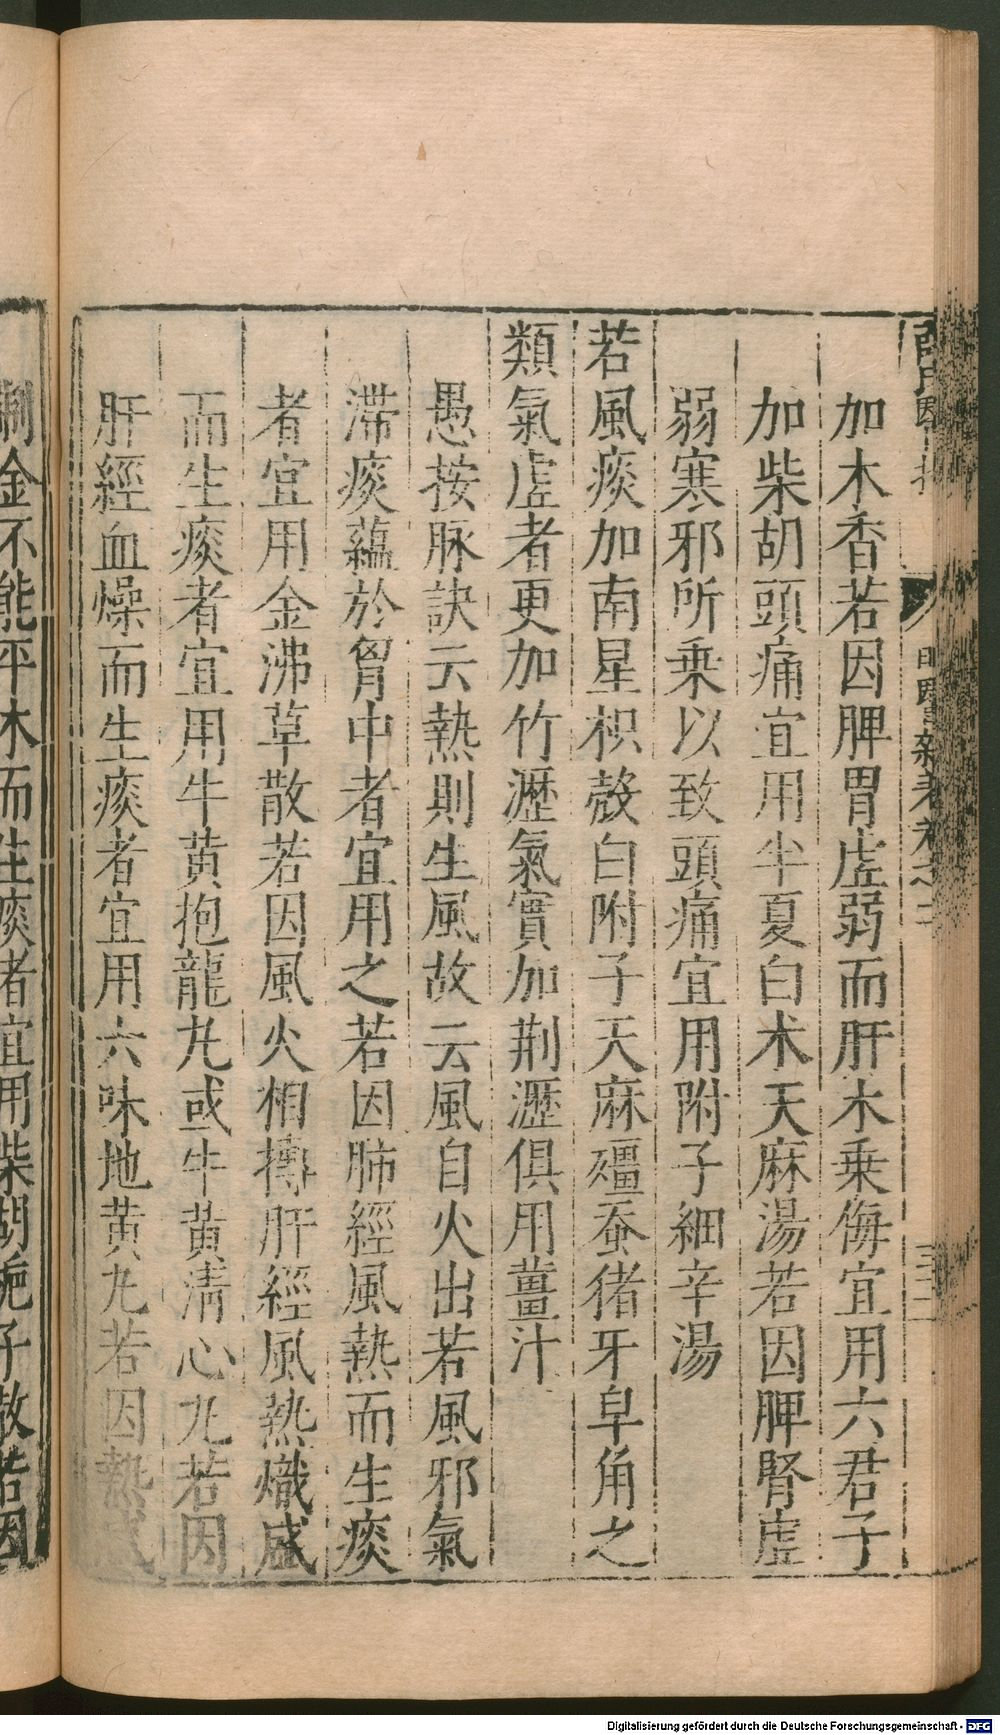 加木香若因脾胃虛弱而肝木乗侮宜用六君子
加柴胡頭痛宜用半夏白术天麻湯若因脾腎虛
弱寒邪所乗以致頭痛宜用附子細辛湯
若風痰加南星枳殼白附子天麻殭蚕猪牙皁角之
類氣虛者更加竹瀝氣實加荆瀝俱用薑汁
愚按脉訣云熱則生風故云風自火出若風邪氣
滯痰蘊於胷中者宜用之若因肺經風熱而生痰
者宜用金沸草散若因風火相摶肝經風熱熾盛
而生痰者宜用牛黃抱龍丸或牛黃淸心丸若因
肝經血燥而生痰者宜用六味地黃丸若因熱盛
制金不能平木而生痰者宜用柴胡梔子散若因
Digitalisierung gefördert durch die Deutsche Forschungsgemeinschaft - DFG